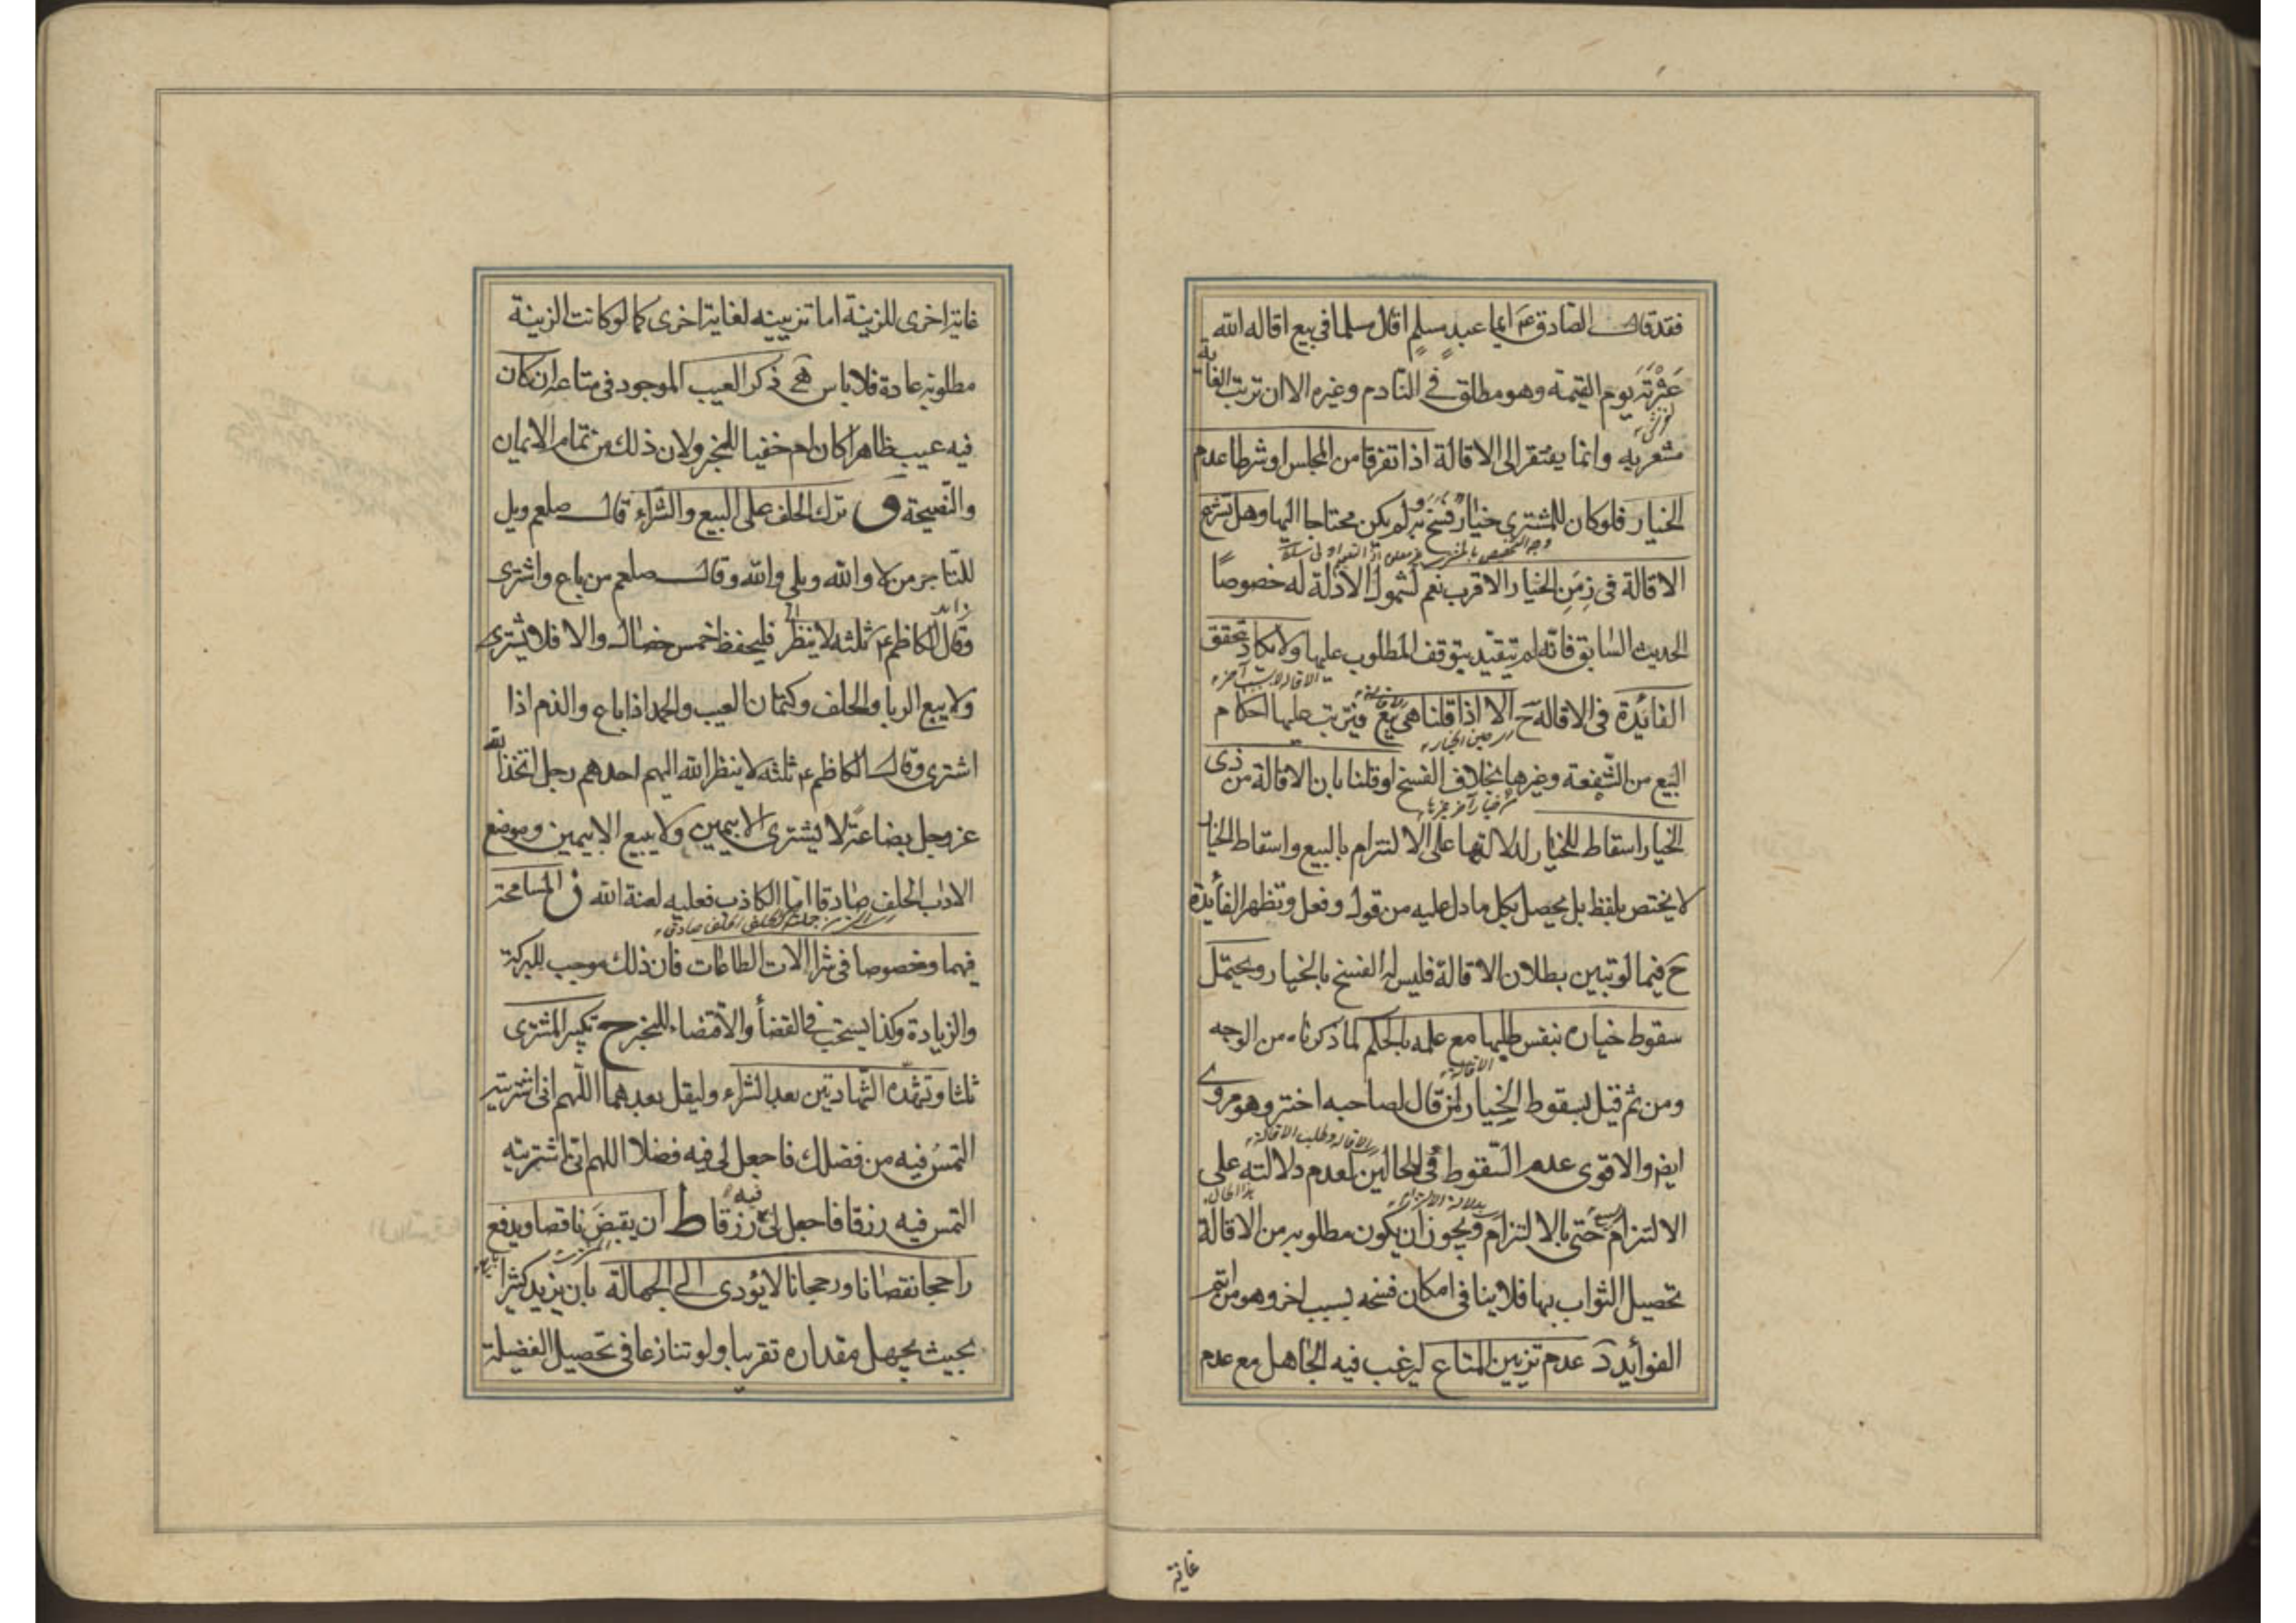 فقد قال الصادق ع ايما عبد مسلم اقال مسلما في بيع اقاله الله
عَثْرَتَه يوم القيمة وهو مطلق في النادم وغيره الا ان ترتب الغاية
مشعر به وانما يفتقر الى الاقالة اذا تفرقا من المجلس او شرطا عدم
الخيار فلو كان للمشتري خيار فسخ به ولم يكن محتاجا اليها وهل تشرع
الاقالة في زمن الخيار الاقرب نعم لشمول الادلة له خصوصًا
الحديث السابق فانه لم يتقيد بتوقف المطلوب عليها ولا يكاد تتحقق
الفائدة في الاقالة ح الا اذا قلنا هي بيع فيترتب عليها احكام
البيع من الشفعة وغيرها بخلاف الفسخ او قلنا بان الاقالة من ذي
الخيار اسقاط للخيار لدلالتها على الالتزام بالبيع واسقاط الخيار
لا يختص بلفظ بل يحصل بكل ما دل عليه من قول وفعل وتظهر الفائدة
ح فيما لو تبين بطلان الاقالة فليس له الفسخ بالخيار ويحتمل
سقوط خياره بنفس طلبها مع علمه بالحكم لما ذكرناه من الوجه
ومن ثم قيل بسقوط الخيار لمن قال لصاحبه اختر وهو مروي
ايض والاقوى عدم السقوط في الحالين لعدم دلالته على
الالتزام حتى بالالتزام ويجوز ان يكون مطلوبه من الاقالة
تحصيل الثواب بها فلا ينافي امكان فسخه بسبب اخر وهو من اتم
الفوايد د عدم تزيين المتاع ليرغب فيه الجاهل مع عدم
غاية
غاية اخرى للزينة اما تزيينه لغاية اخرى كما لو كانت الزينة
مطلوبة عادة فلا باس هـ ذكر العيب الموجود في متاعه ان كان
فيه عيب ظاهرا كان ام خفيا للخبر ولان ذلك من تمام الايمان
والنصيحة و ترك الحلف على البيع والشراء قال صلعم ويل
للتاجر من لا والله وبلى والله وقال صلعم من باع واشترى
فليحفظ خمس خصال والا فلا يشترى
ولا يبع الربا والحلف وكتمان العيب والحمد اذا باع والذم اذا
اشترى وقال الكاظم ع ثلثة لا ينظر الله اليهم احدهم رجل اتخذ الله
عز وجل بضاعة لا يشترى الا بيمين ولا يبيع الا بيمين وموضع
الادب الحلف صادقا اما الكاذب فعليه لعنة الله ز المسامحة
فيهما وخصوصا في شرا الات الطاعات فان ذلك موجب للبركة
والزيادة وكذا يستحب في القضأ والاقتضاء للخبر ح تكبير المشترى
ثلثا وتشهده الشهادتين بعد الشراء وليقل بعدهما اللهم اني اشتريته
التمسُ فيه من فضلك فاجعل لي فيه فضلا اللهم اني اشتريته
التمس فيه رزقا فاجعل لي فيه رزقا ط ان يقبضَ ناقصا ويدفع
راجحا نقصانا ورجحانا لا يؤدى الى الجهالة بان يزيد كثيرا
بحيث يجهل مقداره تقريبا ولو تنازعا في تحصيل الفضيلة